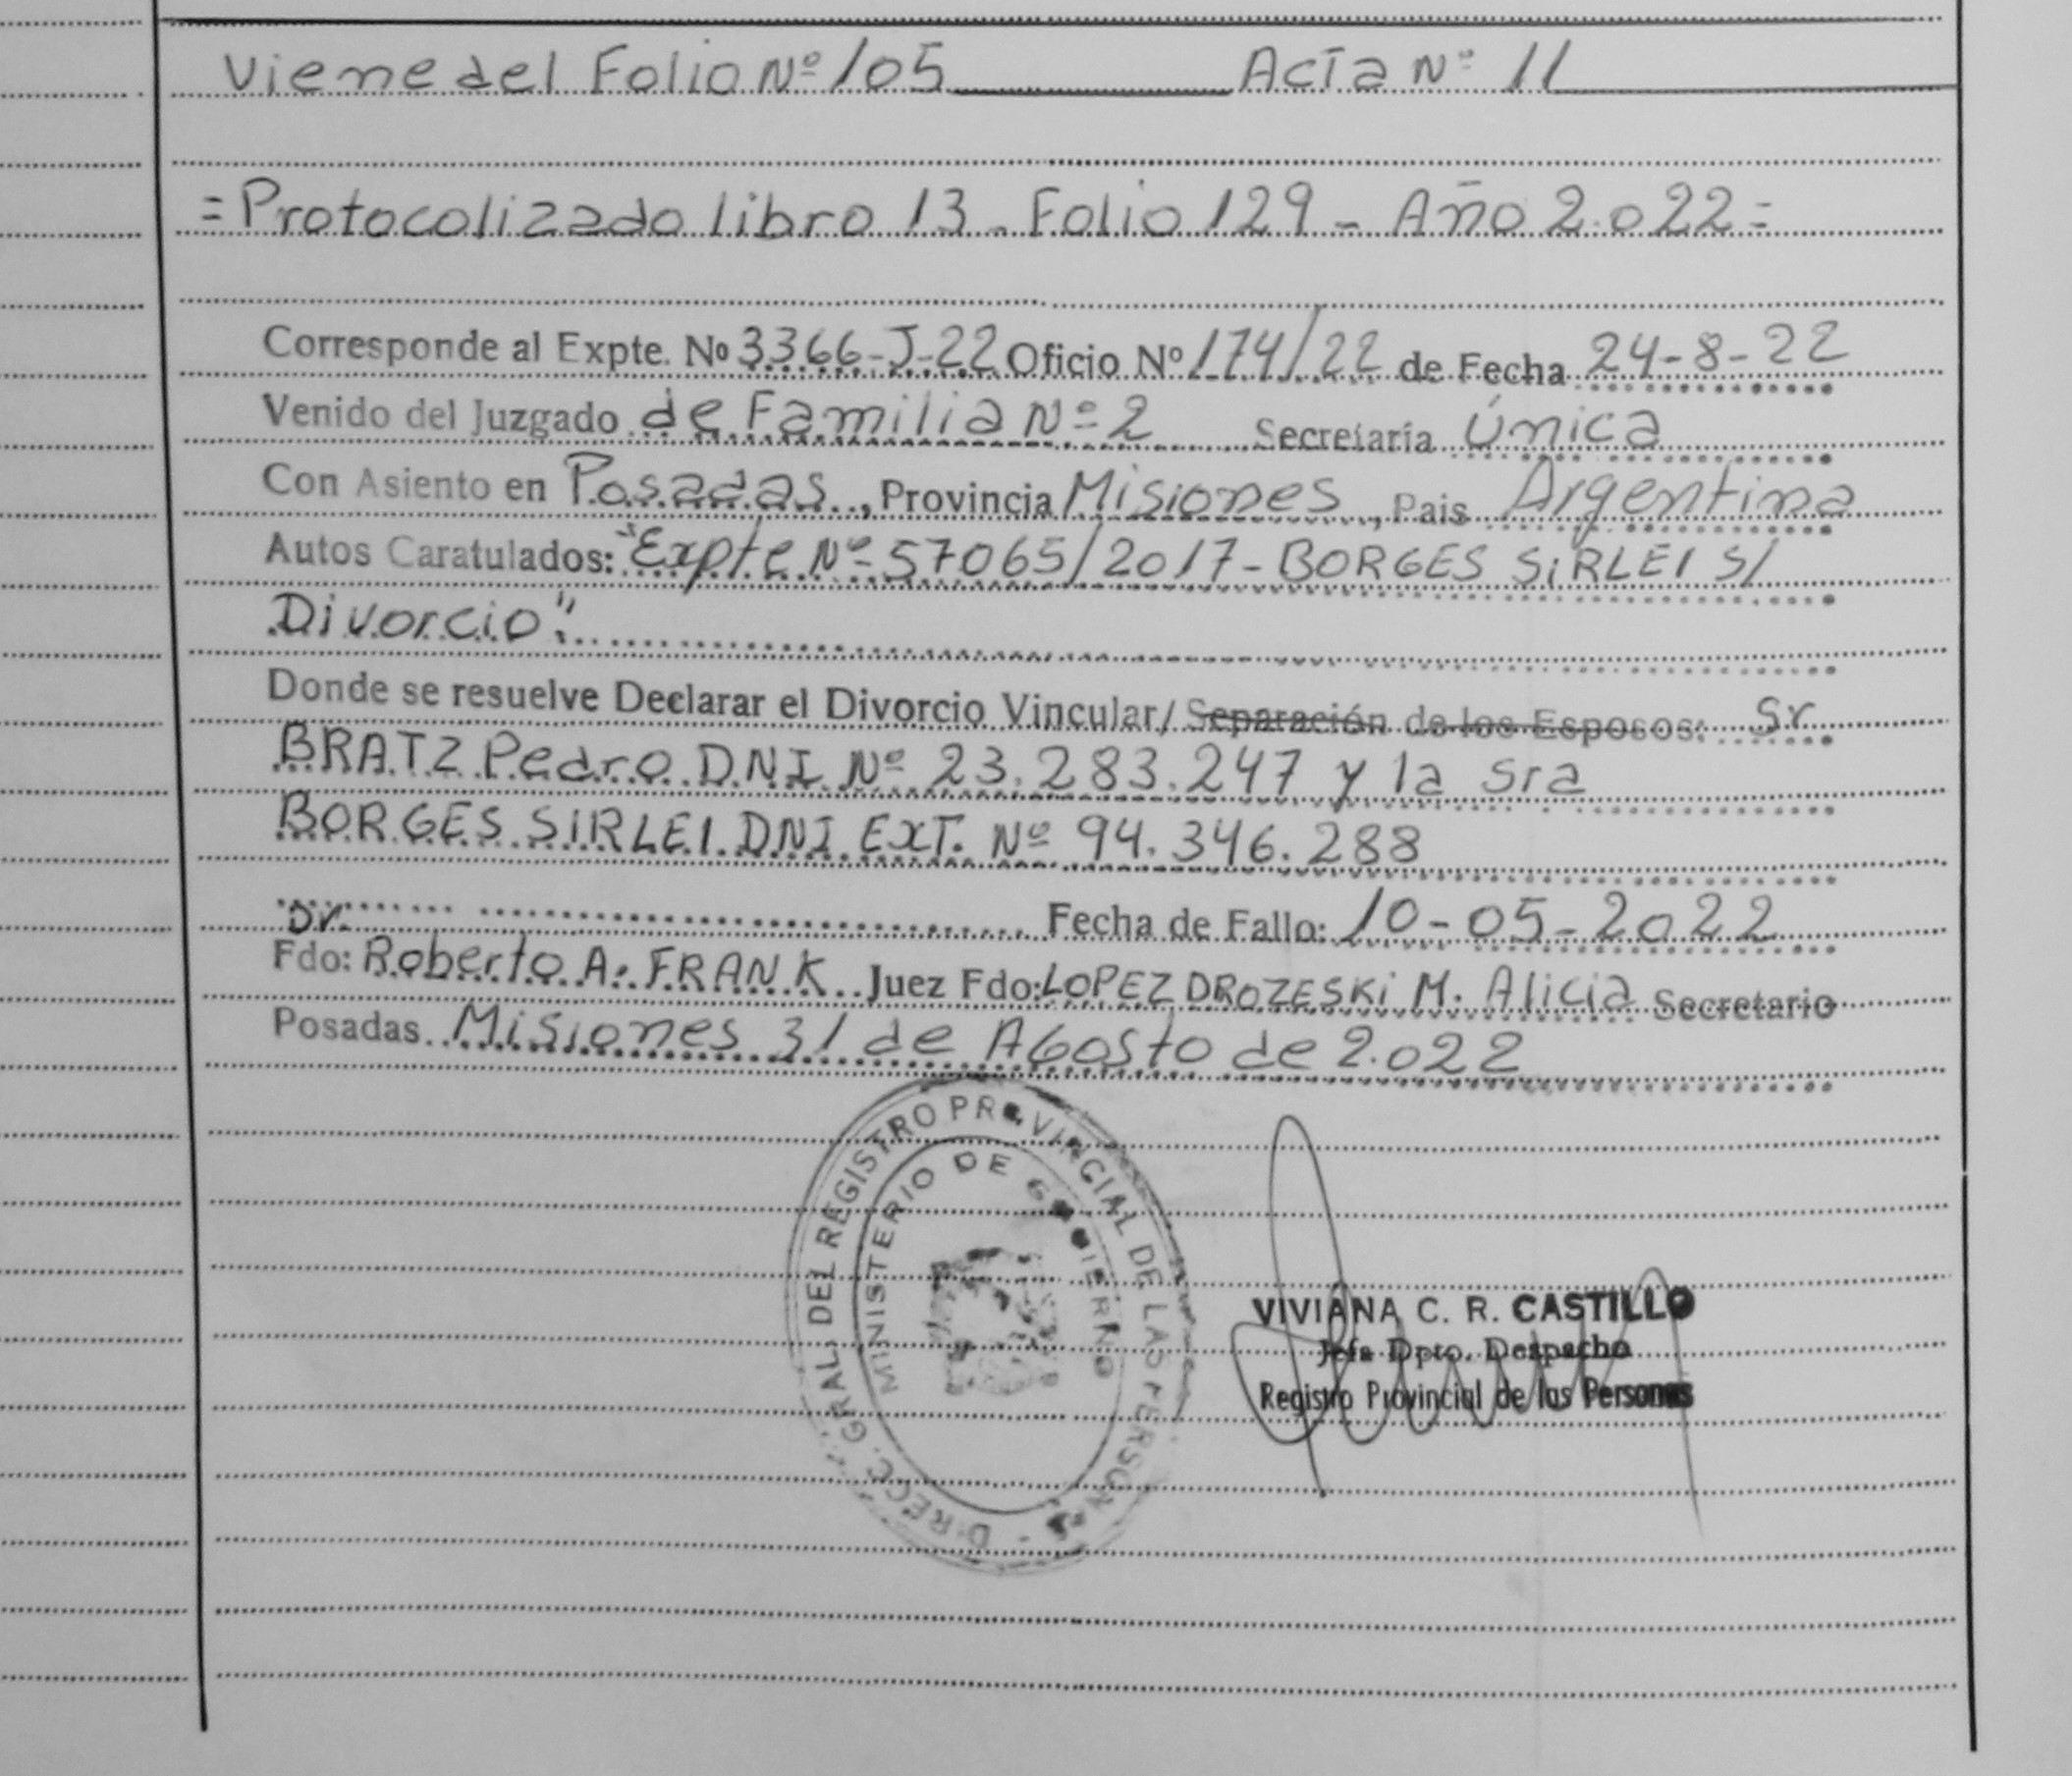 Viene del Folio Nº 105 Acta Nº 11
=Protocolizado libro 13 - Folio 129 - Año 2.022=
Corresponde al Expte. Nº 3366-J-22 Oficio Nº 174/22 de Fecha 24-8-22
Venido del Juzgado de Familia Nº 2 Secretaría Única
Con Asiento en Posadas, Provincia Misiones, Pais Argentina
Autos Caratulados: "Expte Nº 57065/2017 - BORGES SiRLEI S/
Divorcio".
Donde se resuelve Declarar el Divorcio Vincular/ Separación de los Esposos: Sr
BRATZ Pedro DNI Nº 23.283.247 y la Sra
BORGES SIRLEI DNI EXT. Nº 94.346.288
Dr. Fecha de Fallo: 10-05-2022
Fdo: Roberto A. FRANK Juez Fdo: LOPEZ DROZESKi M. Alicia Secretario
Posadas Misiones 31 de AGosto de 2.022
DIRECC. GRAL. DEL REGISTRO PROVINCIAL DE LAS PERSONAS
MINISTERIO DE GOBIERNO
VIVIANA C. R. CASTILLO
Jefa Dpto. Despacho
Registro Provincial de las Personas